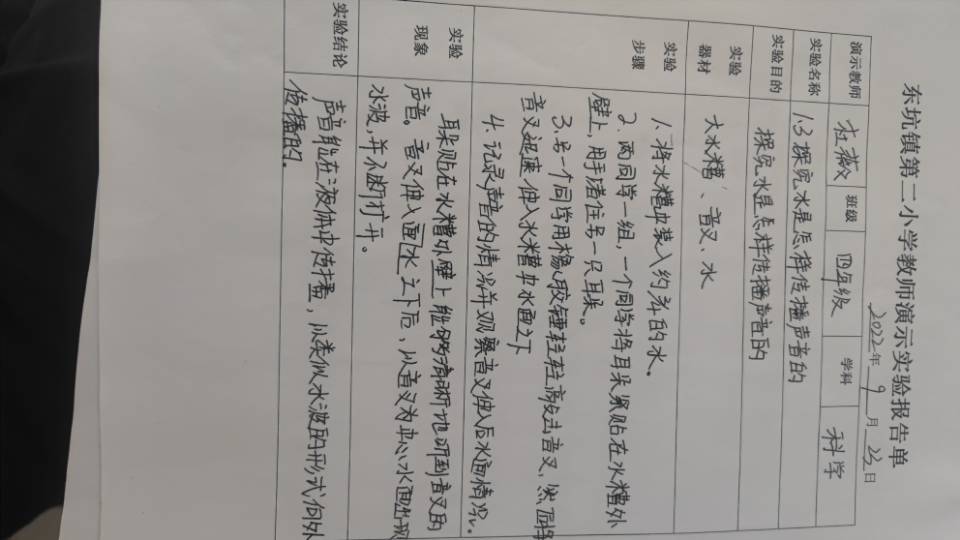 东坑镇第二小学教师演示实验报告单
2022年 9 月 23 日
演示教师 杜薇 班级 四年级 学科 科学
实验名称 1.3探究水是怎样传播声音的
实验目的 探究水是怎样传播声音的
实验器材 大水槽、音叉、水
实验步骤
1.将水槽中装入约3/4的水。
2.两同学一组,一个同学将耳朵紧贴在水槽外
壁上,用手堵住另一只耳朵。
3.另一个同学用橡胶锤轻轻敲击音叉,然后将
音叉迅速伸入水槽中水面之下
4.记录声音的情况并观察音叉伸入后水面情况。
实验现象
耳朵贴在水槽外壁上能够清晰地听到音叉的
声音。音叉伸入水之下后,以音叉为中心水面出现
水波,并不断扩开。
实验结论
声音能在液体中传播,以类似水波的形式向外
传播的。